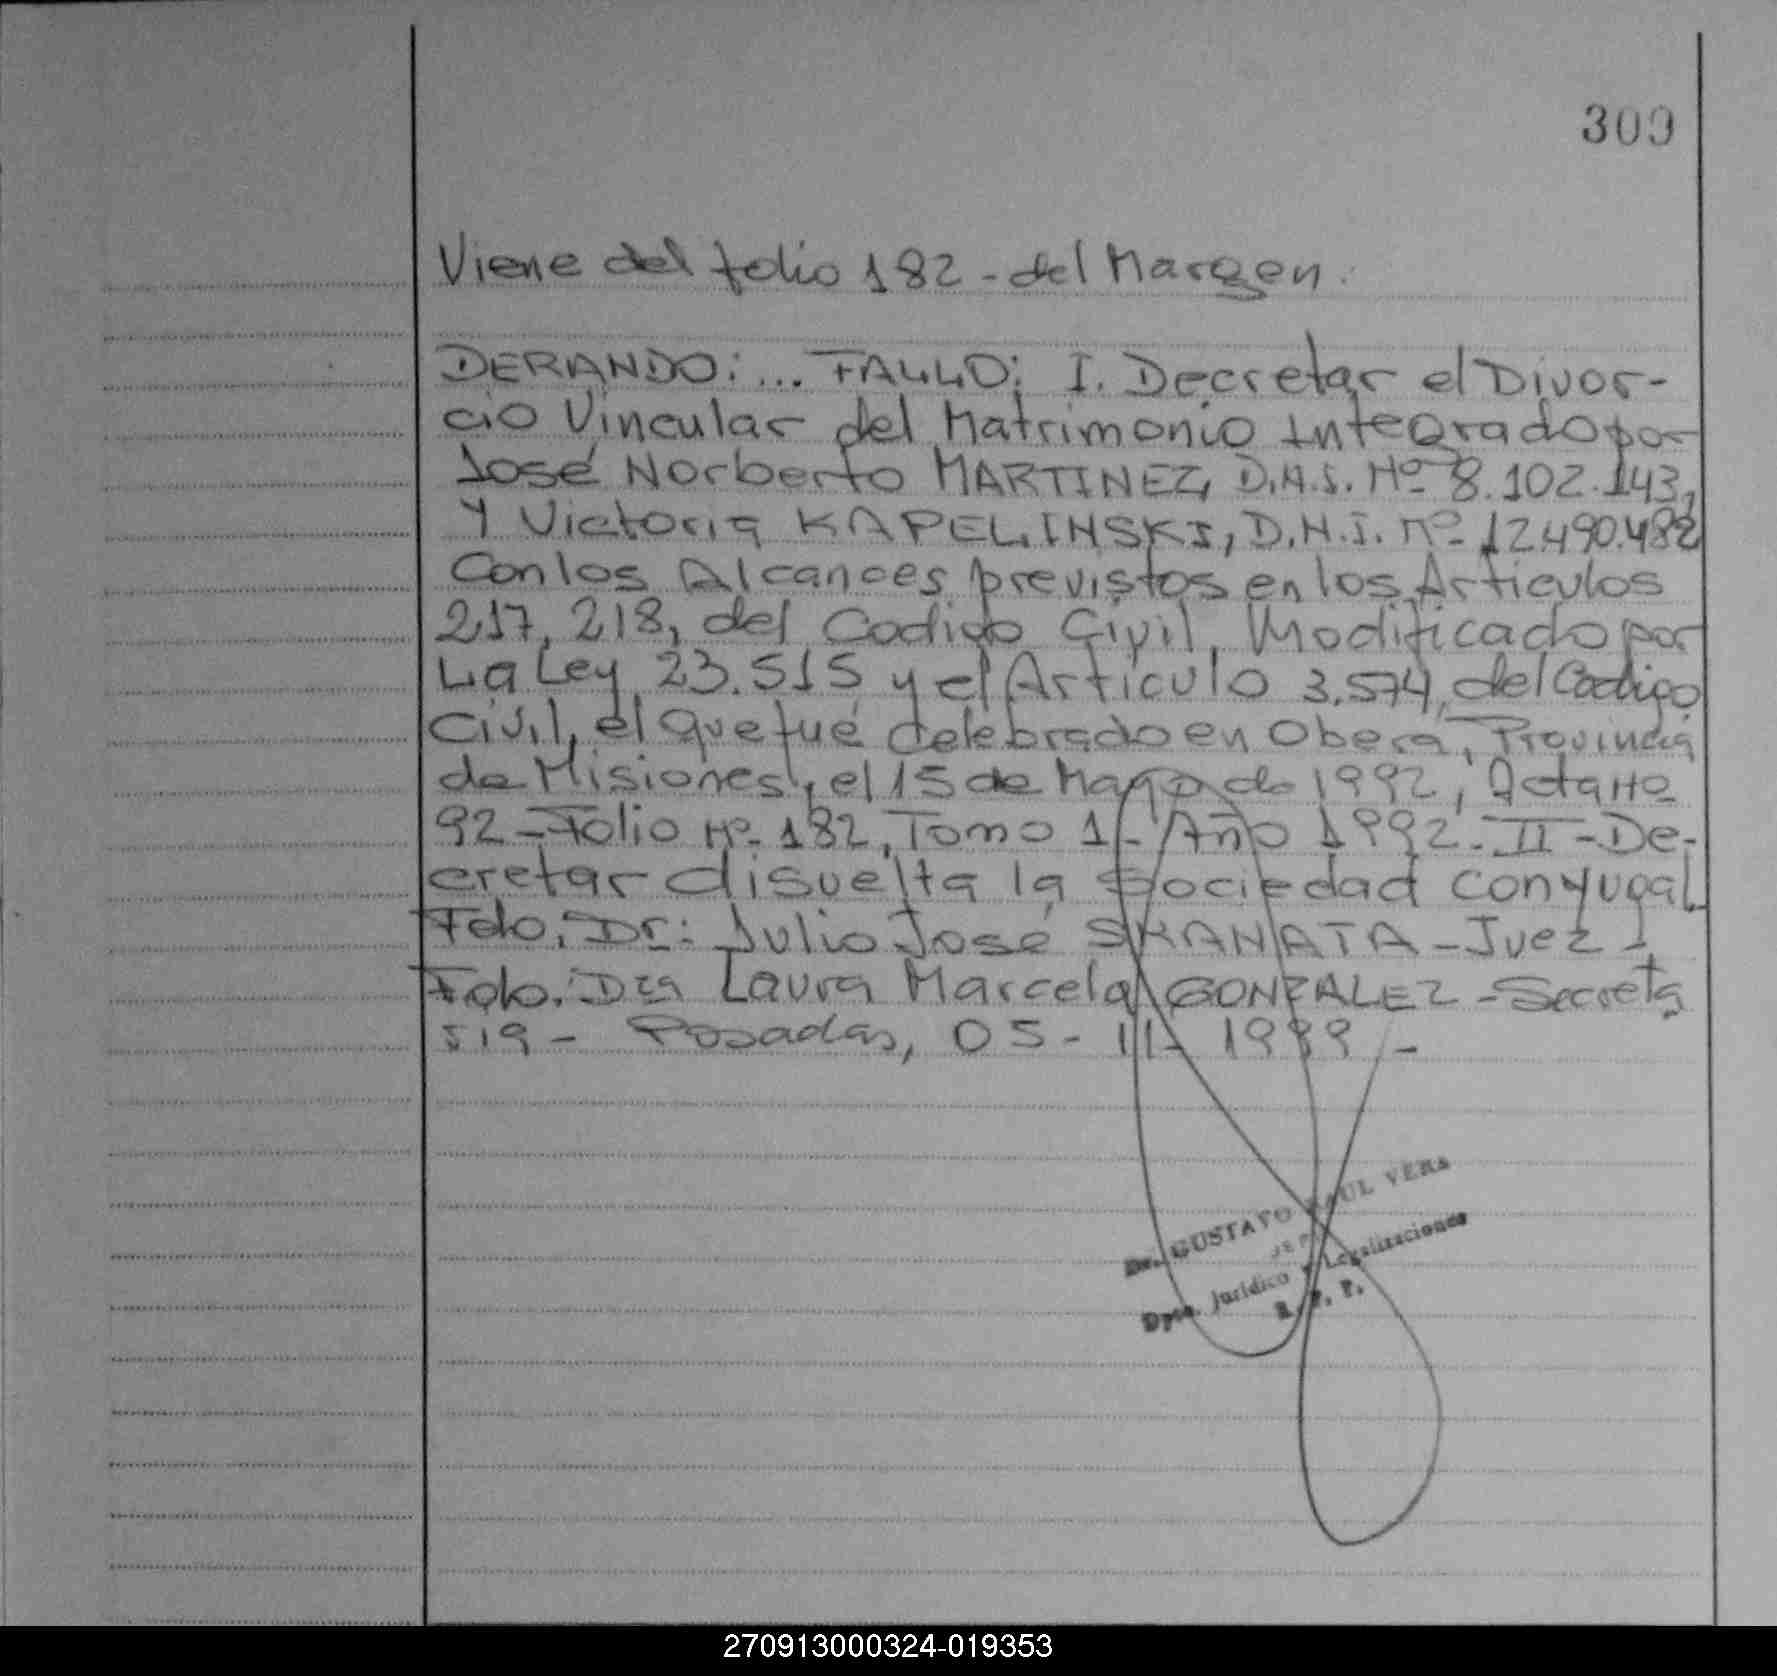 309
Viene del folio 182 - del Margen.
DERANDO: ... FALLO: I. Decretar el Divor-
cio Vincular del Matrimonio Integrado por
José Norberto MARTINEZ, D.N.I. Nº 8.102.143,
Y Victoria KAPELINSKI, D.N.I. Nº 12.490.482
Con los Alcances previstos en los Articulos
217, 218, del Codigo Civil, Modificado por
La Ley 23.515 y el Articulo 3.574, del Codigo
Civil, el que fué celebrado en Obera, Provincia
de Misiones, el 15 de Mayo de 1992, Acta Nº
92 - Folio Nº 182, Tomo 1 - Año 1992 - II - De-
cretar disuelta la Sociedad conyugal.
Fdo. Dr: Julio José SKANATA - Juez -
Fdo. Dra Laura Marcela GONZALEZ - Secreta
ria - Posadas, 05 - 11 - 1999 -
Dr. GUSTAVO RAUL VERA
JEFE
Dpto. Jurídico y Legalizaciones
R. P. P.
270913000324-019353